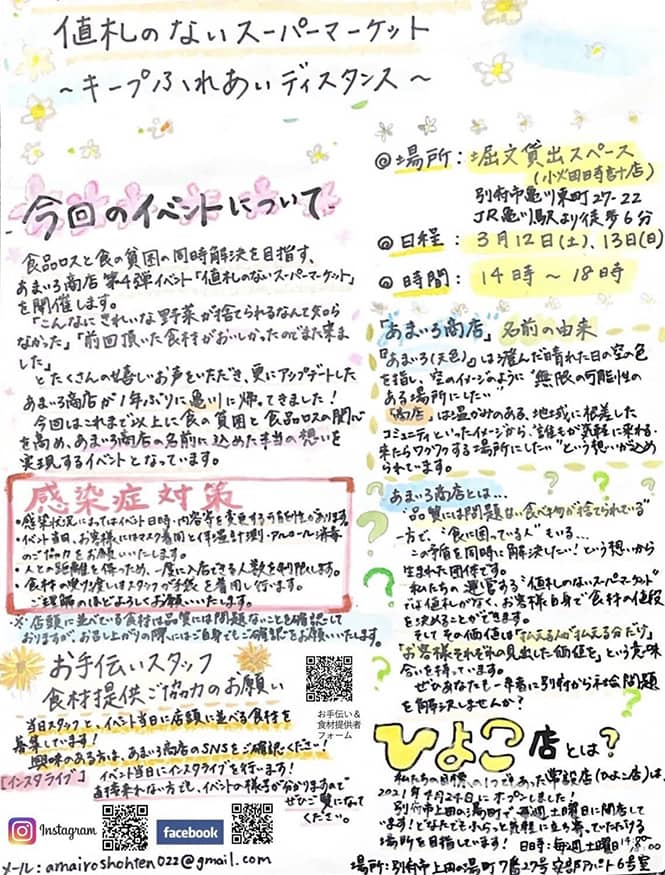 値札のないスーパーマーケット
～キープふれあいディスタンス～
今回のイベントについて
食品ロスと食の貧困の同時解決を目指す、
あまいろ商店第4弾イベント「値札のないスーパーマーケット」
を開催します。
「こんなにきれいな野菜が捨てられるなんて知ら
なかった」「前回頂いた食材がおいしかったのでまた来ま
した」
とたくさんの嬉しいお声をいただき、更にアップデートした
あまいろ商店が1年ぶりに亀川に帰ってきました！
今回はこれまで以上に食の貧困と食品ロスの関心
を高め、あまいろ商店の名前に込めた本当の想いを
実現するイベントとなっています。
感染症対策
・感染状況によってはイベント日時・内容等を変更する可能性があります。
・イベント当日、お客様にはマスク着用と体温計測・アルコール消毒
のご協力をお願いいたします。
・人との距離を保つため、一度に入店できる人数を制限します。
・食材の受け渡しはスタッフが手袋を着用し行います。
ご理解のほどよろしくお願いいたします。
※店頭に並べている食材は品質には問題ないことを確認して
おりますが、お召し上がりの際にはご自身でもご確認をお願いいたします。
お手伝いスタッフ
食材提供ご協力のお願い
当日スタッフと、イベント当日に店頭に並べる食材を
募集しています！
興味のある方は、あまいろ商店のSNSをご確認ください！
[インスタライブ] イベント当日にインスタライブを行います！
直接来れない方でも、イベントの様子が分かりますので
ぜひご覧になって
ください。
お手伝い＆
食材提供者
フォーム
Instagram
facebook
メール：amairoshohten022@gmail.com
◎場所：堀文貸出スペース
(小火田時計店)
別府市亀川東町27-22
JR亀川駅より徒歩6分
◎日程：3月12日(土)、13日(日)
◎時間：14時～18時
「あまいろ商店」名前の由来
「あまいろ(天色)」は澄んだ晴れた日の空の色
を指し、空のイメージのように"無限の可能性の
ある場所にしたい"
「商店」は温かみのある、地域に根差した
コミュニティといったイメージから、"誰もが気軽に来れる・
来たらワクワクする場所にしたい"という想いが込め
られています。
あまいろ商店とは...
"品質には問題ない食べ物が捨てられている"
一方で、"食に困っている人"もいる...
この矛盾を同時に解決したい！という想いから
生まれた団体です。
私たちの運営する"値札のないスーパーマーケット"
では値札がなく、お客様自身で食材の値段
を決めることができます。
そしてその価値は「払える人が払える分だけ」
「お客様それぞれの見出した価値を」という意味
合いを持っています。
ぜひあなたも一緒に別府から社会問題
を解決しませんか？
ひよこ店とは？
私たちの目標の1つでもあった常設店(ひよこ店)は、
2021年4月24日にオープンしました！
別府市上田の湯町で毎週土曜日に開店して
います！どなたでもふらっと気軽に立ち寄っていただける
場所を目指しています！ 日時：毎週土曜日
場所：別府市上田の湯町7番27号 安部アパート6号室